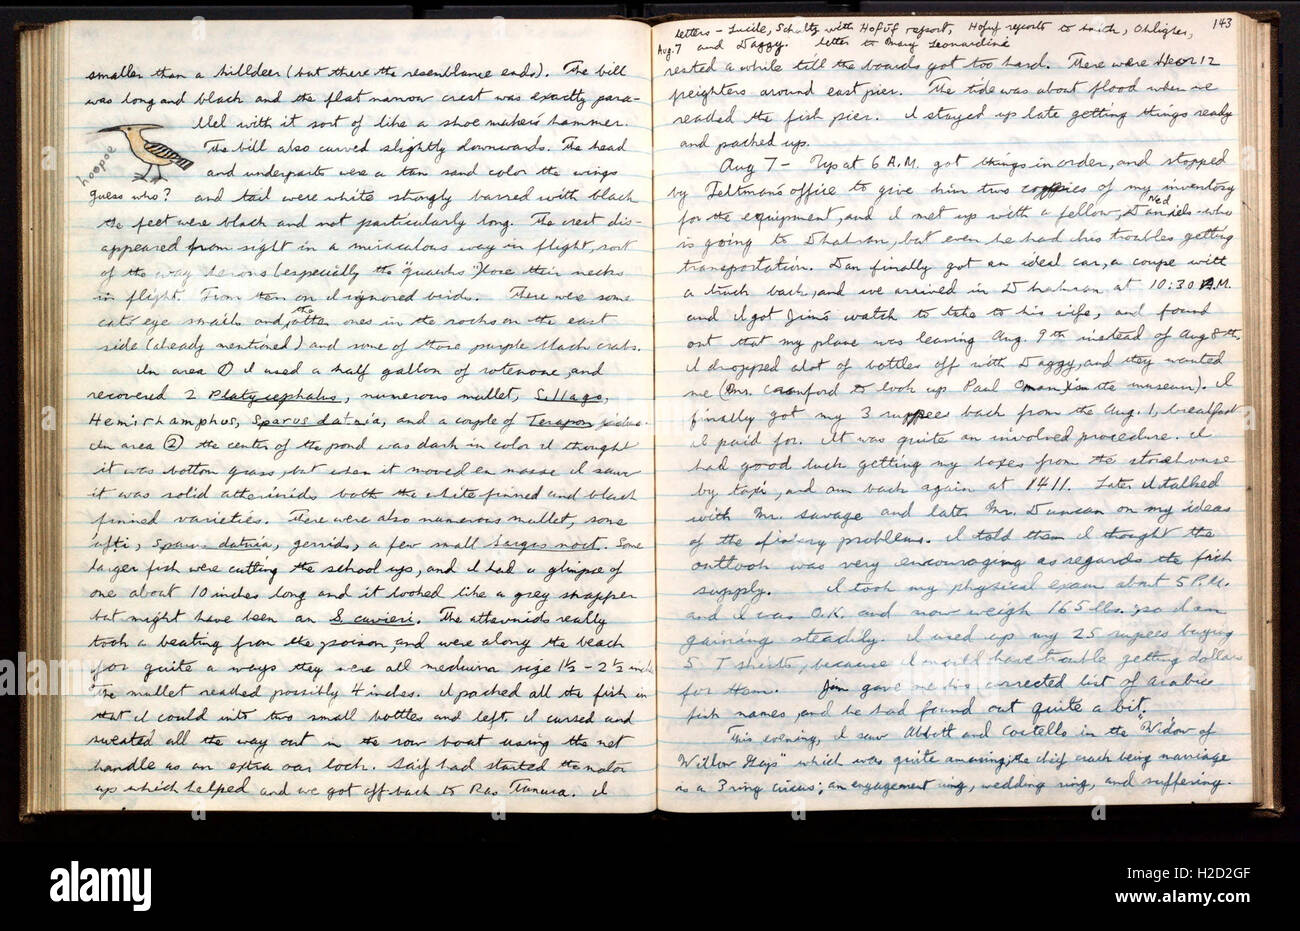 smaller than a killdeer (but there the resemblance ends). The bill
was long and black and the flat narrow crest was exactly para-
llel with it sort of like a shoe makers hammer.
The bill also curved slightly downwards. The head
and underparts were a tan sand color the wings
hoopoe
guess who? and tail were white strongly barred with black
the feet were black and not particularly long. The crest dis-
appeared from sight in a miraculous way in flight, sort
of the way herons (especially the "quarks") lose their necks
in flight. From then on I ignored birds. There were some
cat's eye snails and, the other ones in the rocks on the east
side (already mentioned) and some of those purple black crabs.
In area ① I used a half gallon of rotenone, and
recovered 2 Platycephalus, numerous mullet, Sillago,
Hemirhamphus, Sparus datnia, and a couple of Terapon
In area ② the center of the pond was dark in color I thought
it was bottom grass, but when it moved en masse I saw
it was solid atherinids both the white finned and black
finned varieties. There were also numerous mullet, some
ifti, Sparus datnia, gerrids, a few small harges noct. Some
larger fish were cutting the school up, and I had a glimpse of
one about 10 inches long and it looked like a grey snapper
but might have been an S cuvieri. The atherinids really
took a beating from the poison, and were along the beach
for quite a ways they were all medium size 1½ - 2½ inch
The mullet reached possibly 4 inches. I packed all the fish in
that I could into two small bottles and left. I cursed and
sweated all the way out in the row boat using the net
handle as an extra oar lock. Saif had started the motor
up which helped and we got off back to Ras Tanura. I
143
letters - Lucile, Schultz with Hofuf report, Hofuf reports to
Aug. 7 and Daggy. letter to Mary Leonardine
rested a while till the boards got too hard. There were 12
freighters around east pier. The tide was about flood when we
reached the fish pier. I stayed up late getting things ready
and packed up.
Aug 7 - Up at 6 A.M. got things in order, and stopped
by Feltman's office to give him two copies of my inventory
for the equipment, and I met up with a fellow, Ned Daniels who
is going to Dhahran, but even he had his troubles getting
transportation. Dan finally got an ideal car, a coupe with
a truck back, and we arrived in Dhahran at 10:30 A.M.
and I got Jim's watch to take to his wife, and found
out that my plane was leaving Aug. 9th instead of Aug 8th,
I dropped a lot of bottles off with Daggy, and they wanted
me (Mrs. Crawford to look up Paul Oman in the museum). I
finally got my 3 rupees back from the Aug. 1, breakfast
I paid for. It was quite an involved procedure. I
had good luck getting my boxes from the storehouse
by taxi, and am back again at 1411. Later I talked
with Mr. Savage and later Mr. Duncan on my ideas
of the fishery problems. I told them I thought the
outlook was very encouraging as regards the fish
supply. I took my physical exam about 5 P.M.
and I was O.K. and now weigh 165 lbs. so I am
gaining steadily. I used up my 25 rupees buying
5 T shirts, because I would have trouble getting dollars
for them. Jim gave me his corrected list of Arabic
fish names, and he had found out quite a bit.
This evening, I saw Abbott and Costello in the "Widow of
Willow Gap" which was quite amusing, the chief crack being marriage
is a 3 ring circus; an engagement ring, wedding ring, and suffering.
alamy
Image ID: H2D2GF
www.alamy.com